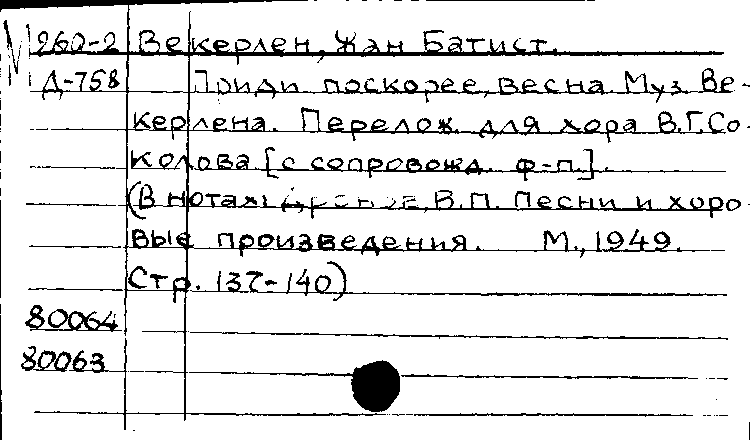 М 960-2 Векерлен, Жан Батист.
Д-758 Приди поскорее, весна. Муз. Ве-
керлена. Перелож. для хора В.Г.Со-
колова [с сопровожд. ф-п.].
(В нотах: В.П. Песни и хоро
вые произведения. М., 1949.
Стр. 137-140)
80064
80063